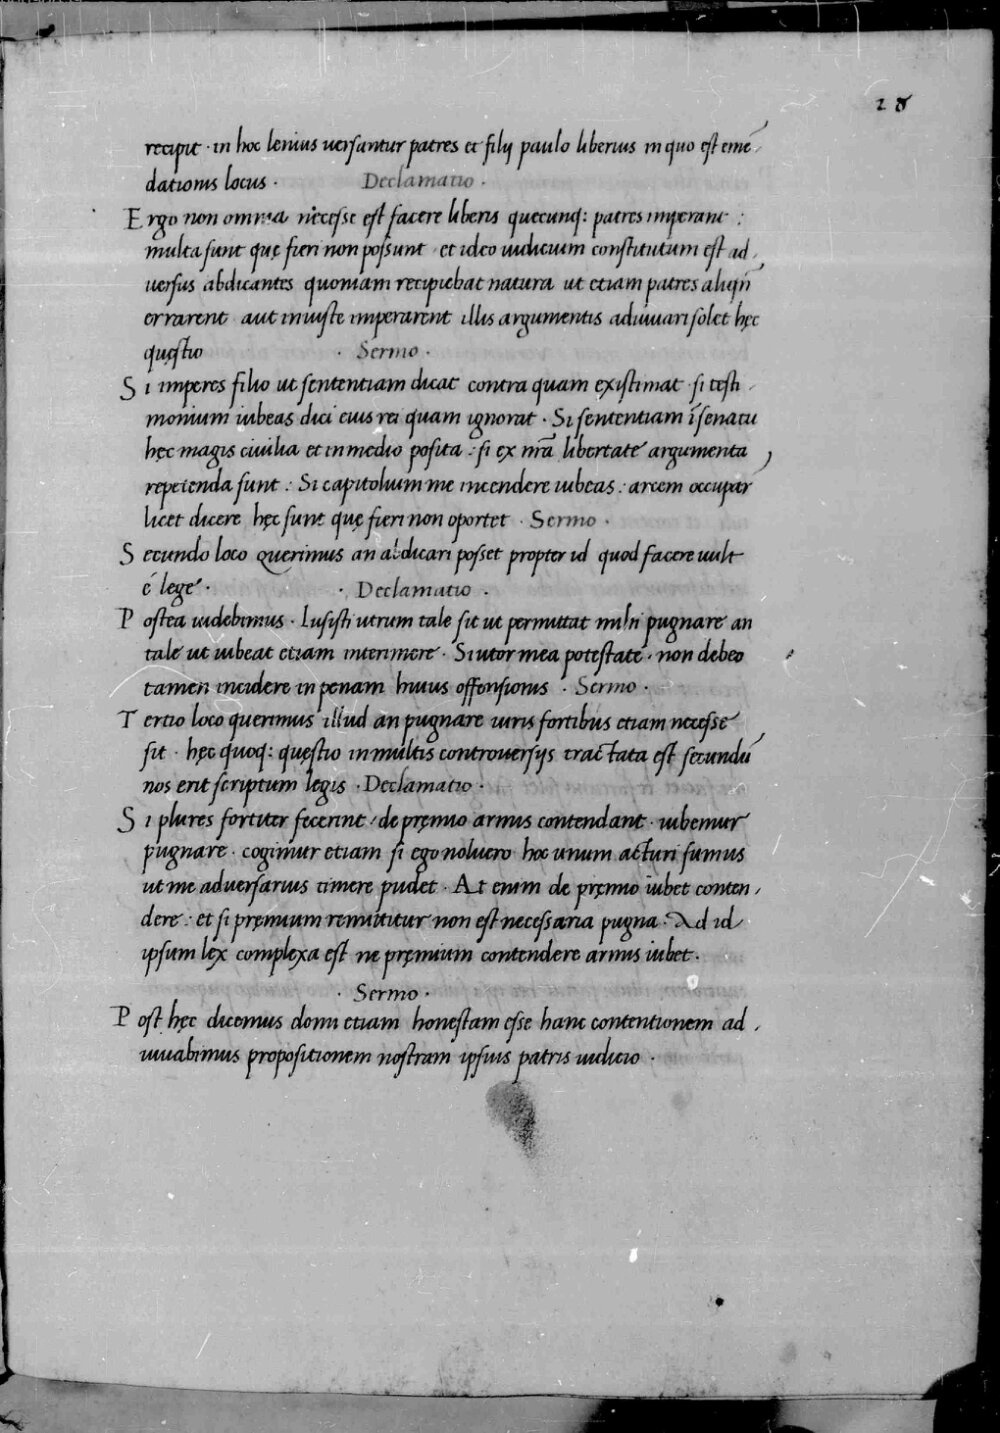 28
recipit · in hoc lenius uersantur patres et filij paulo liberius in quo est emē
dationis locus · Declamatio ·
Ergo non omnia necesse est facere liberis quecunq: patres imperant :
multa sunt quę fieri non possunt et ideo iudicium constitutum est ad
uersus abdicantes quoniam recipiebat natura ut etiam patres aliqn̄
errarent aut iniuste imperarent illis argumentis adiuuari solet hęc
quęstio · Sermo ·
Si imperes filio ut sententiam dicat contra quam existimat · si testi
monium iubeas dici eius rei quam ignorat · Si sententiam ī senatu
hęc magis ciuilia et in medio posita : si ex nr̄a libertate argumenta
repetenda sunt : Si capitolium me incendere iubeas : arcem occupar̄
licet dicere hęc sunt quę fieri non oportet · Sermo ·
Secundo loco querimus an abdicari posset propter id quod facere uult
ē lege · · Declamatio ·
Postea uidebimus · Lusisti utrum tale sit ut permittat mihi pugnare an
tale ut iubeat etiam interimere · Si utor mea potestate · non debeo
tamen incidere in penam huius offensionis · Sermo ·
Tertio loco querimus illud an pugnare uiris fortibus etiam necesse
sit · hęc quoq: quęstio in multis controuersijs tractata est secundū
nos erit scriptum legis · Declamatio ·
Si plures fortiter fecerint / de pręmio armis contendant · iubemur
pugnare · cogimur etiam si ego noluero hoc unum acturi sumus
ut me aduersarius timere pudet · At enim de pręmio iubet conten
dere : et si pręmium remittitur non est necessaria pugna · Ad id
ipsum lex complexa est ne pręmium contendere armis iubet ·
· Sermo ·
Post hęc dicemus domi etiam honestam esse hanc contentionem ad
iuuabimus propositionem nostram ipsius patris iudicio ·